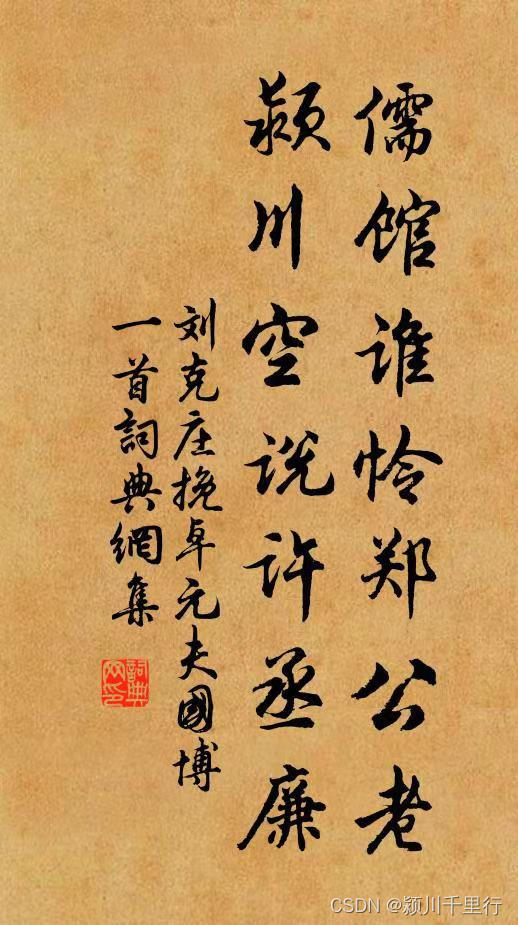 儒馆谁怜郑公老
颍川空说许丞廉
刘克庄挽卓元夫國博
一首詞典網集
詞典网印
CSDN @颍川千里行